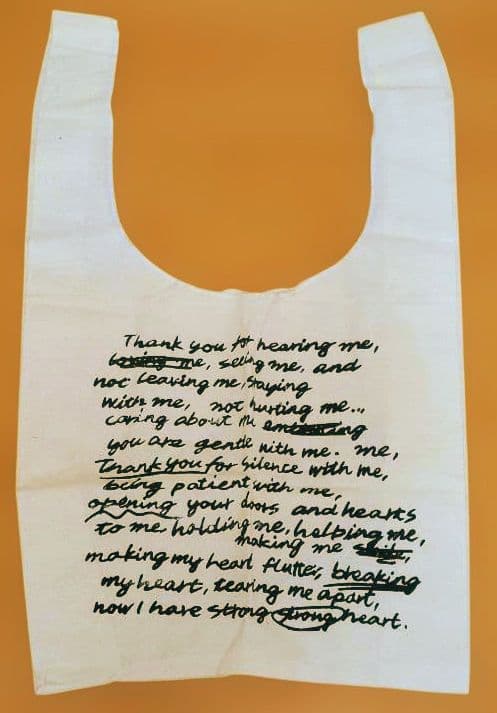 Thank you for hearing me,
loving me, seeing me, and
not leaving me, staying
with me, not hurting me...
caring about me
you are gentle with me. me,
Thank you for silence with me,
being patient with me,
opening your doors and hearts
to me, holding me, helping me,
making me smile,
making my heart flutter, breaking
my heart, tearing me apart,
now I have strong strong heart.